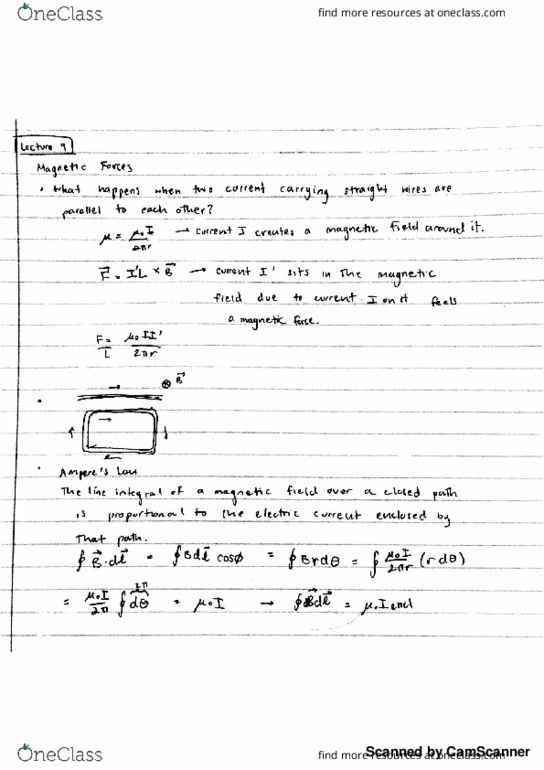 OneClass
find more resources at oneclass.com
Lecture 9
Magnetic Forces
• What happens when two current carrying straight wires are
parallel to each other?
μ = μ₀I/2πr → current I creates a magnetic field around it.
F⃗ = I'L × B⃗ → current I' sits in the magnetic
field due to current I feels
a magnetic force.
F/L = μ₀II'/2πr
→ ⊗ B⃗
•
→
↑ ↓
←
• Ampere's Law
The line integral of a magnetic field over a closed path
is proportional to the electric current enclosed by
that path.
∮ B⃗·dl⃗ = ∮ Bdl⃗ cosφ = ∮ Brdθ = ∮ μ₀I/2πr (rdθ)
= μ₀I/2π ∮ dθ 2π = μ₀I → ∮ B⃗dl⃗ = μ₀Iencl
OneClass
find more resources at oneclass.com
Scanned by CamScanner